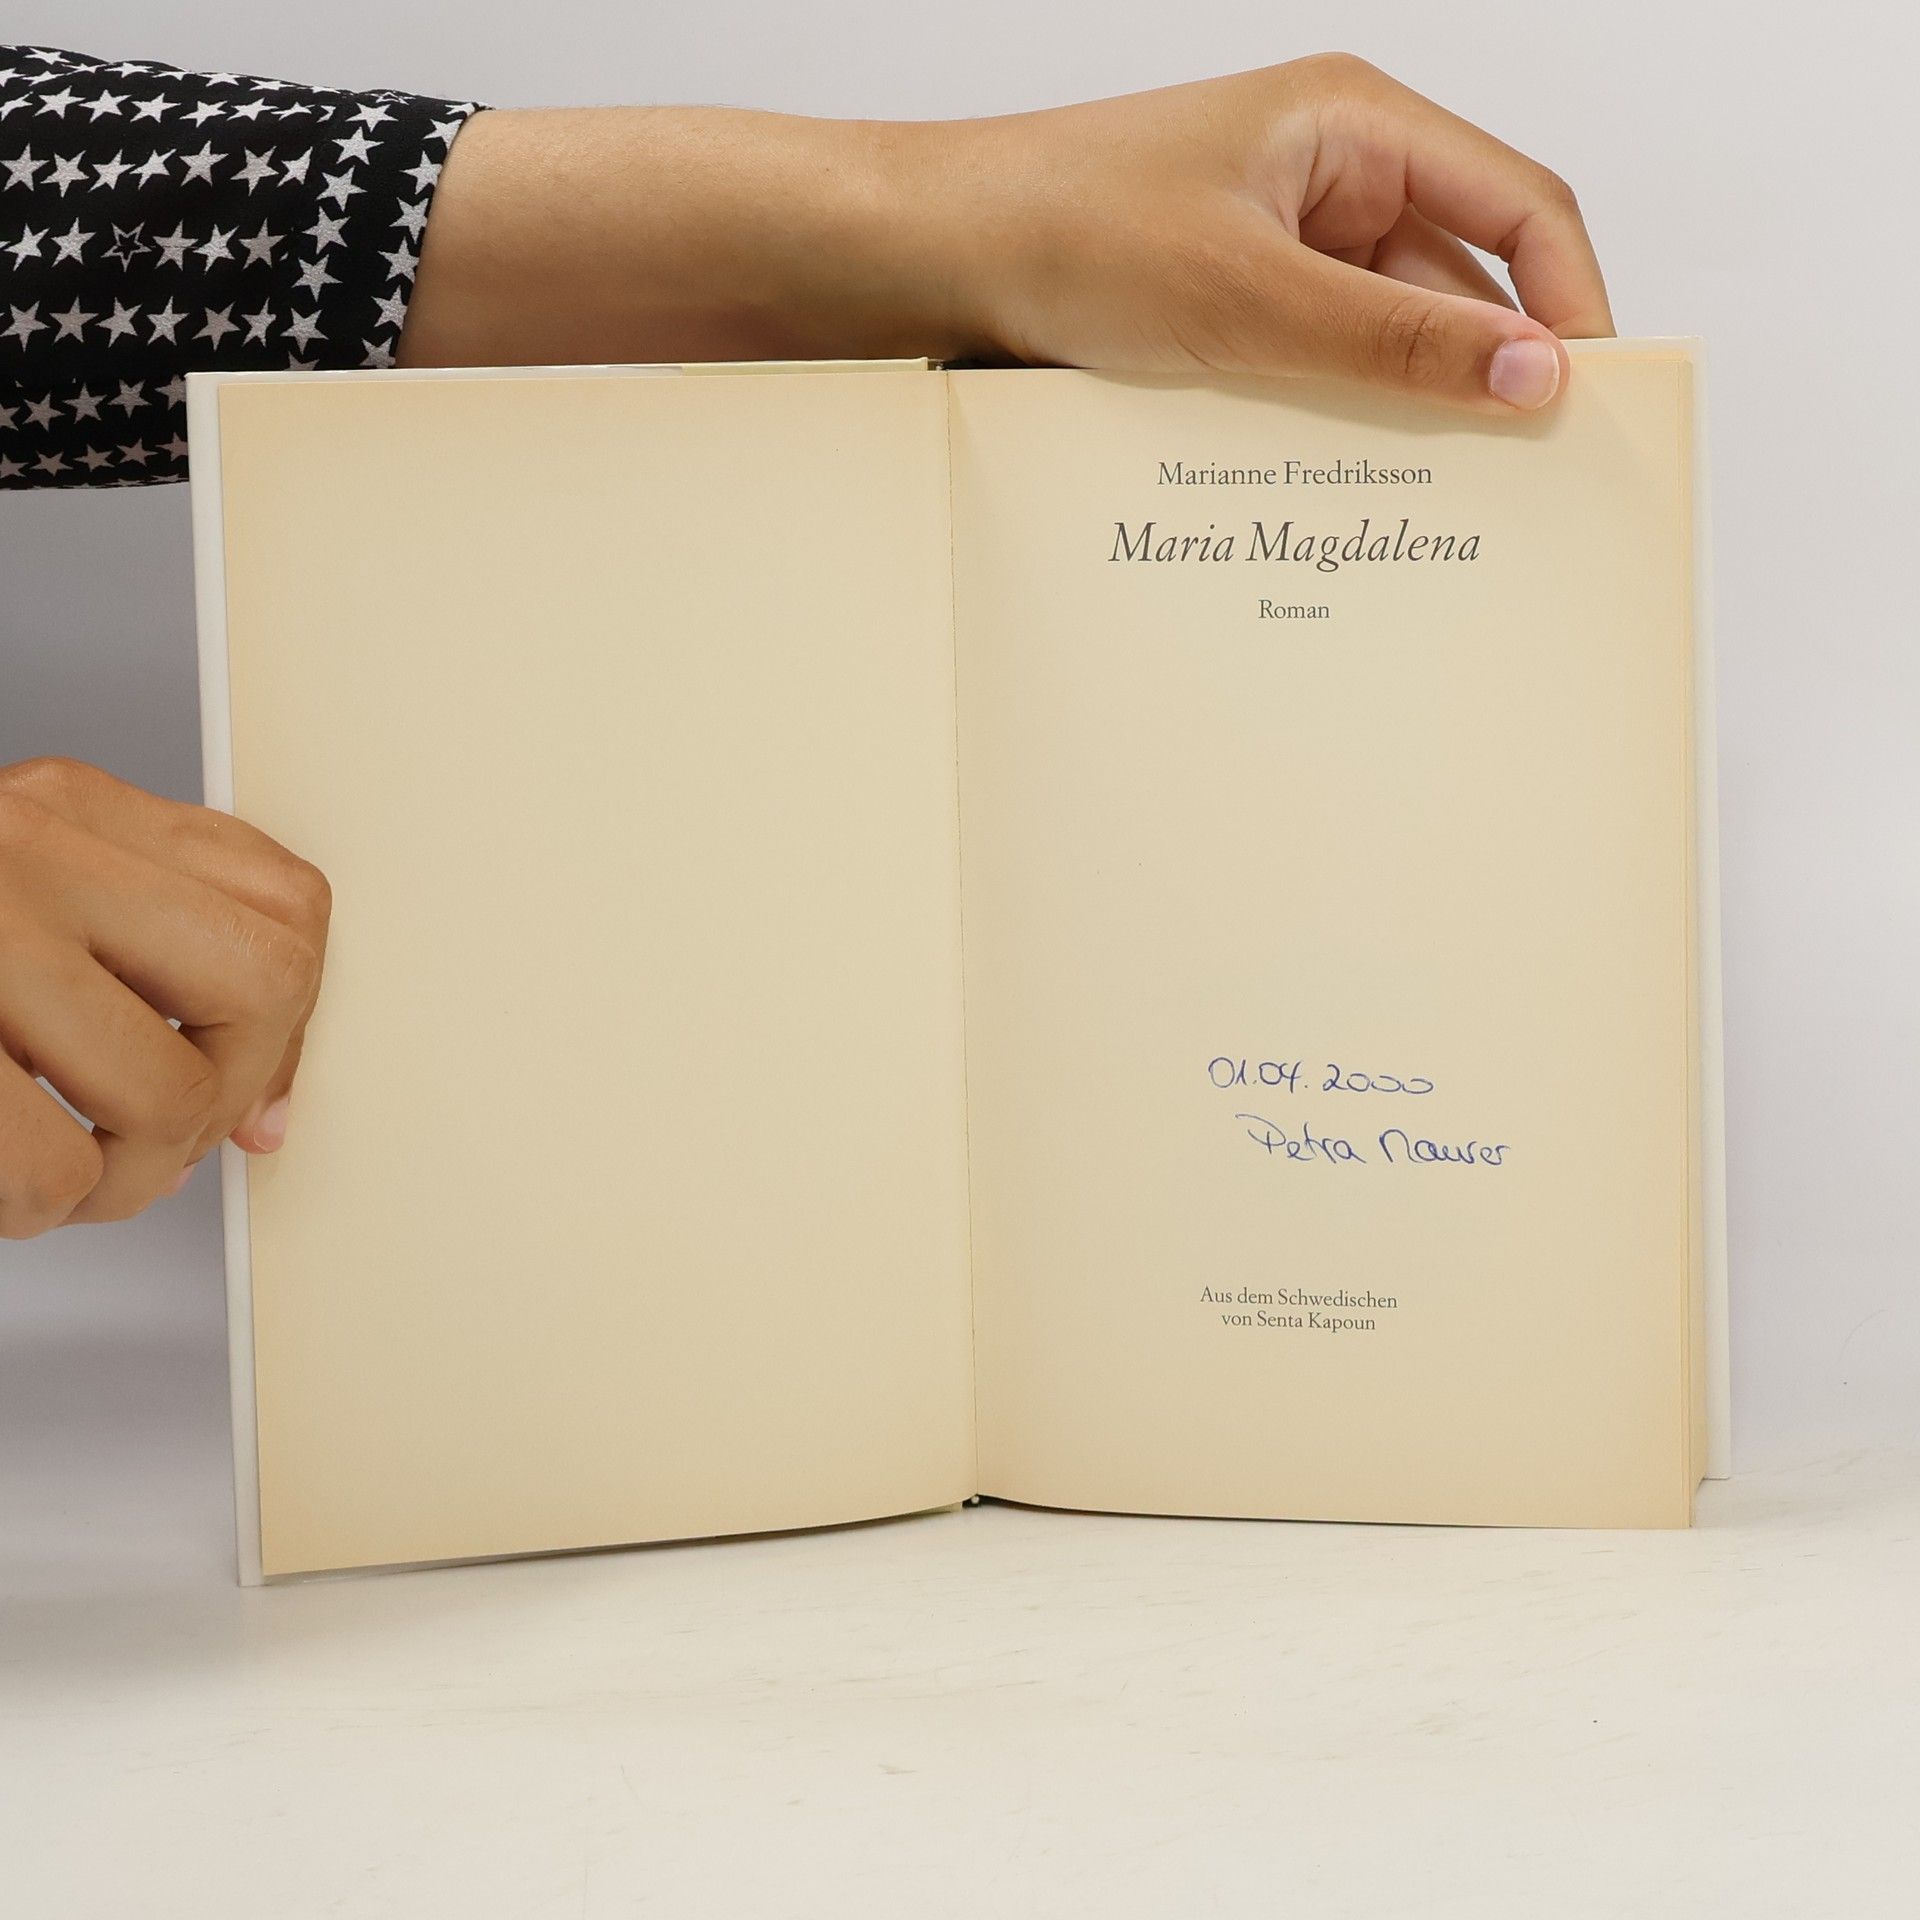 Marianne Fredriksson
Maria Magdalena
Roman
01.04. 2000
Petra Maurer
Aus dem Schwedischen
von Senta Kapoun